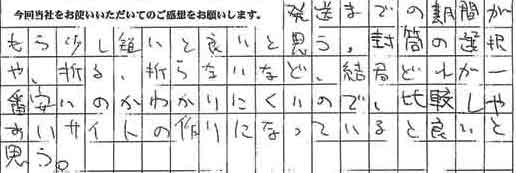 今回当社をお使いいただいてのご感想をお願いします。 発送までの期間が
もう少し短いと良いと思う。封筒の選択
や、折る、折らないなど、結局どれが一
番安いのかわかりにくいので、比較しや
すいサイトの作りになっていると良いと
思う。